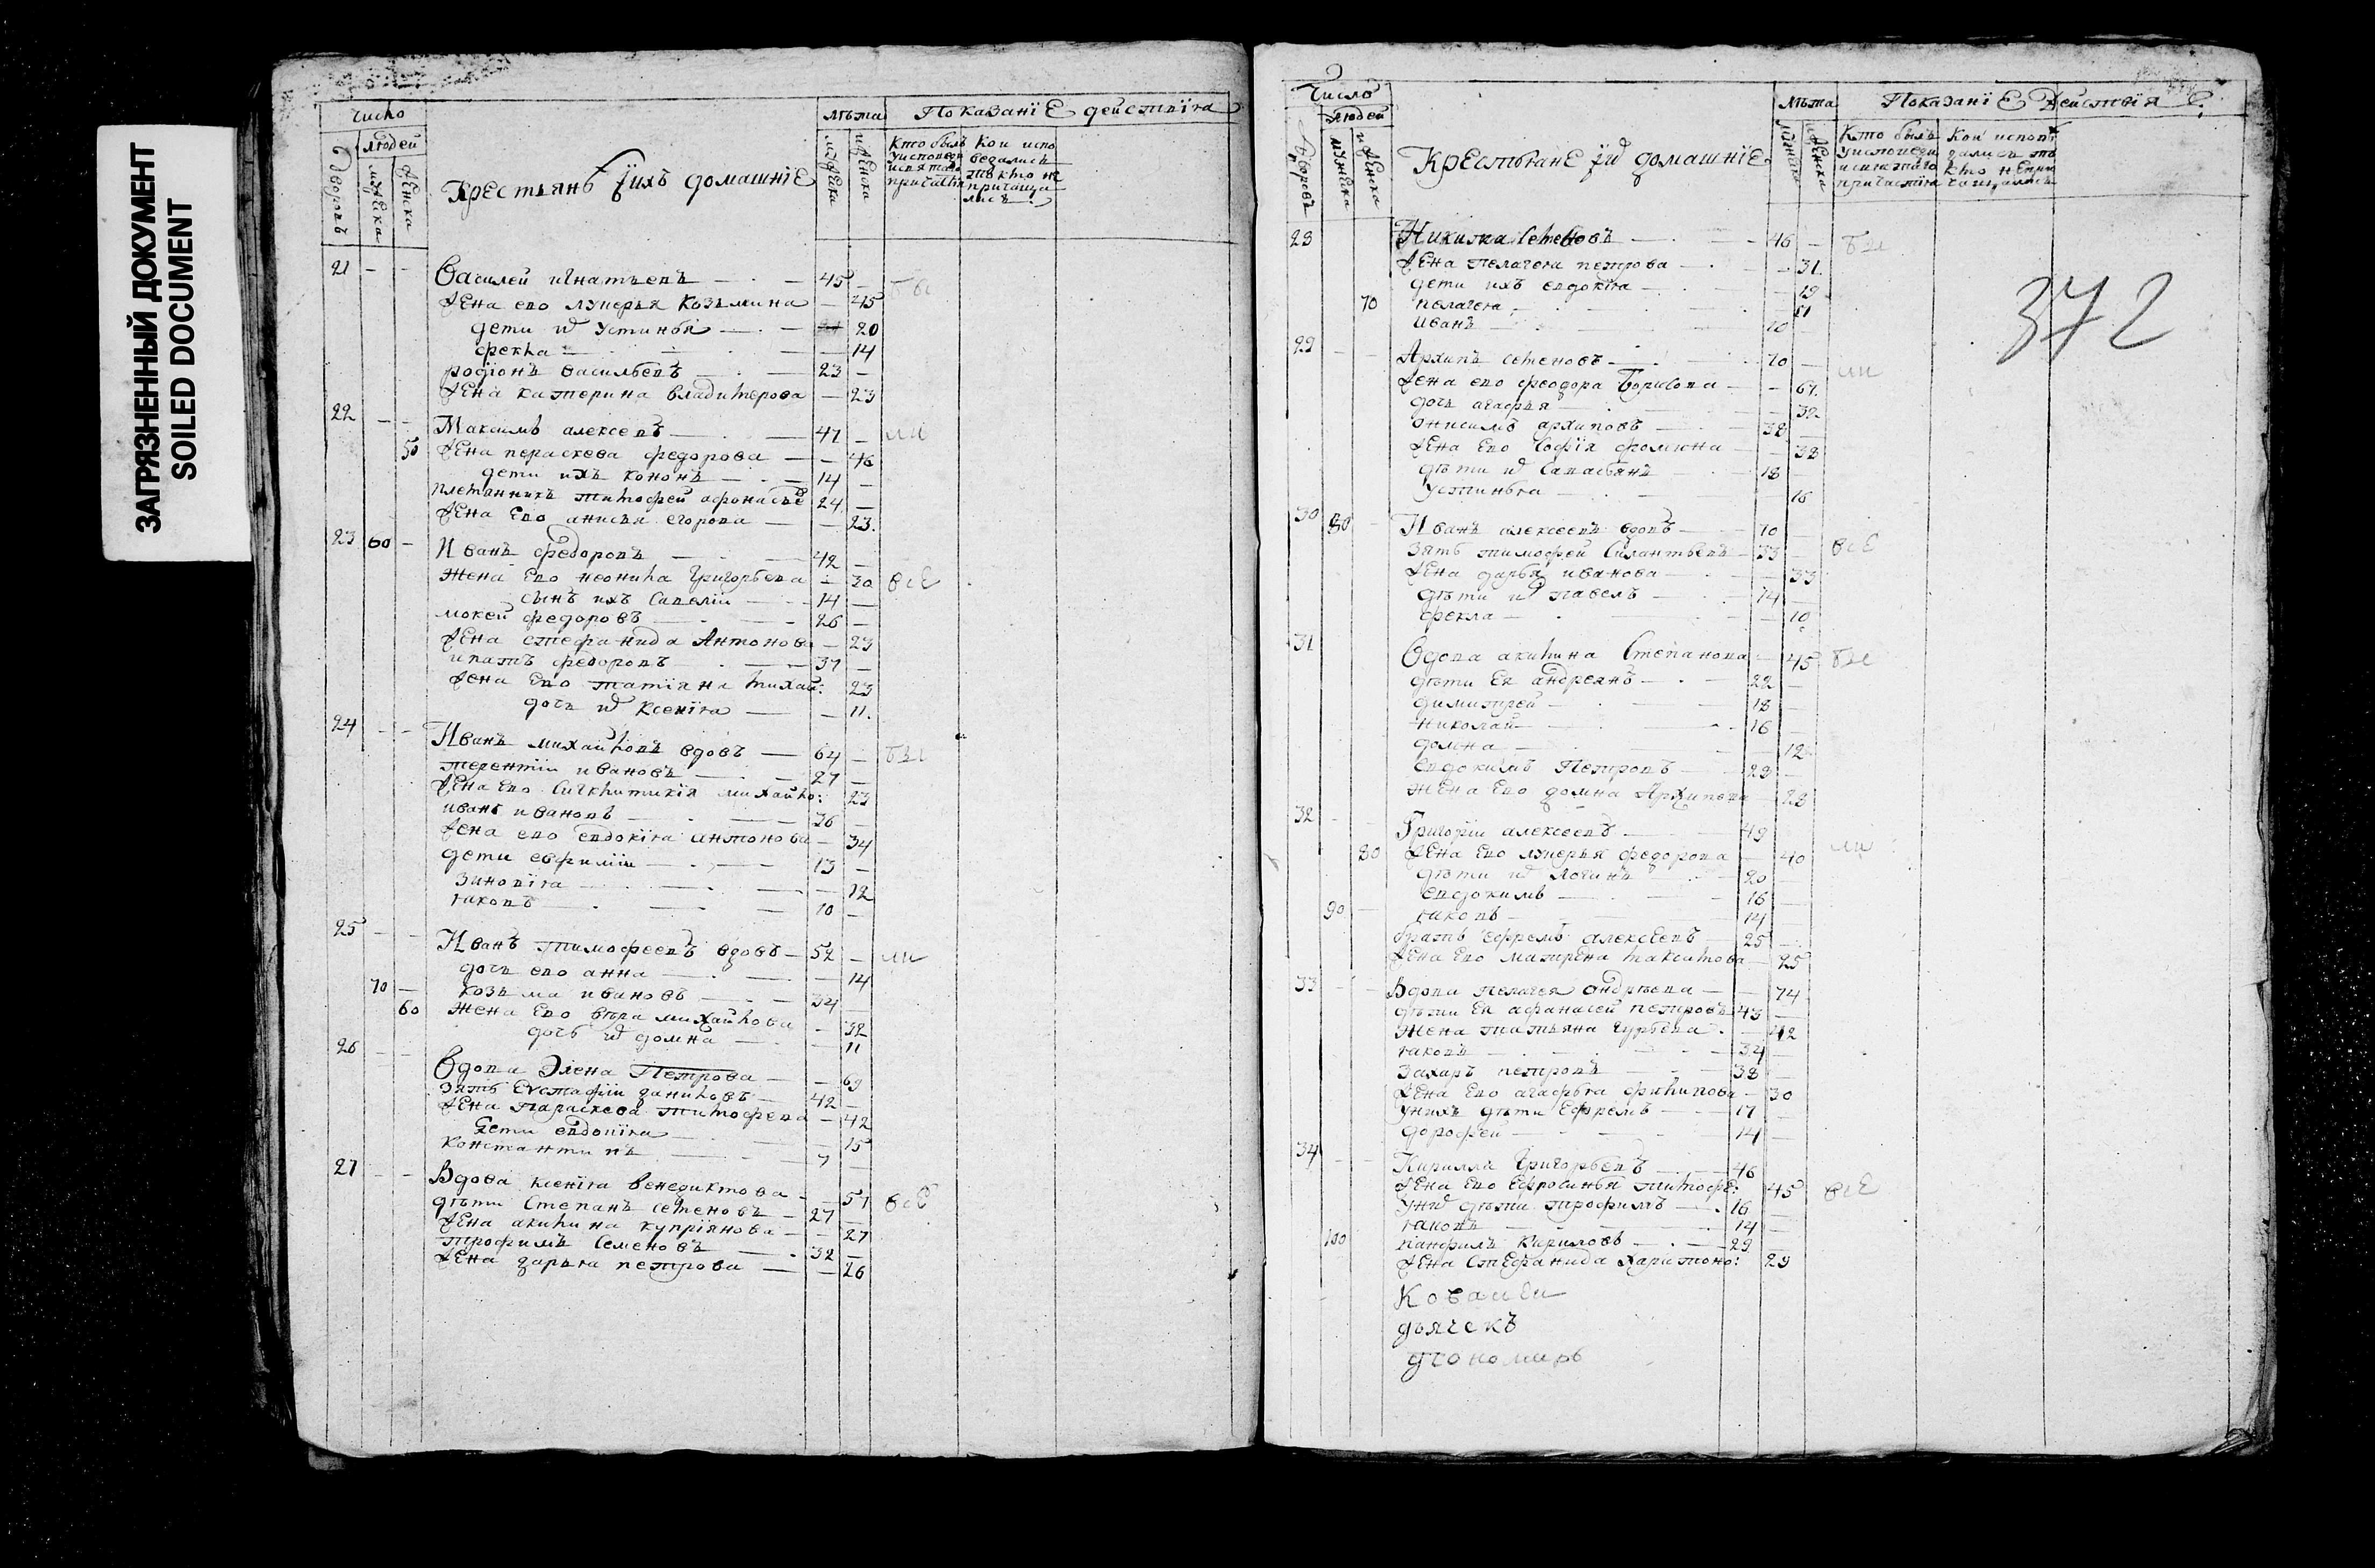 ЗАГРЯЗНЕННЫЙ ДОКУМЕНТ
SOILED DOCUMENT
число
людей
дворовъ
мужеска
женска
Крестьянъ ихъ домашнiе
лѣта
мужска
женска
Показанiе действiя
Кто былъ у исповеди и святаго причастiя
Кои исповедались токмо не причащались
21 Василей игнатьевъ 45 бы
жена ево лукерья Козьмина 45
дети их Устинья 20
фекла 14
родiонъ васильевъ 23
жена катерина владимерова 23
22 Максимъ алексевъ 47 ли
50 жена параскева федорова 46
дети ихъ кононъ 14
племянникъ тимофей афонасье 24
жена ево анисья егорова 23
23 60 Иванъ федоровъ 42
Жена ево неонила Григорьева 30 всЕ
сынъ ихъ Савелiи 14
мокей федоровъ 26
жена стефанида Антонова 23
ипатъ федоровъ 37
жена ево татiяна михаи: 23
дочь их ксенiя 11
24 Иванъ михаиловъ вдовъ 64 бы
терентiи ивановъ 27
жена ево Сигклитикiя михаило: 23
иванъ ивановъ 36
жена ево евдокiя антонова 34
дети ефимiи 13
зиновiя 12
яковъ 10
25 Иванъ тимофеевъ вдовъ 52 ли
дочь ево анна 14
70 козьма ивановъ 34
60 Жена ево вѣра михаилова 32
дочь их домна 11
26 Вдова Элена Петрова 69
зять Евстафiи даниловъ 42
жена параскева тимофева 42
дети евдокiя 15
Константинъ 7
27 Вдова ксенiя венедиктова 57 всЕ
дѣти Степанъ семеновъ 27
жена акилина купрiянова 27
трофимъ Семеновъ 32
жена дарья петрова 26
Число
людей
дворовъ
мужска
женска
Крестьяне их домашнiе
лѣта
мужска
женска
Показанiе действiя
Кто былъ у исповеди и святаго причастiя
Кои исповедались токмо не причащались
372
28 Никита Семеновъ 46 бы
жена пелагея петрова 31
дети ихъ евдокiя 19
70 пелагея
иванъ 10
29 Архипъ семеновъ 70 ли
жена ево феодора борисова 67
дочь агафья 32
Онисимъ архиповъ 38
жена ево Софiя 38
дѣти их Савастьянъ 18
Устинья 16
30 80 Иванъ алексеевъ вдовъ 70
зять тимофей Силантьевъ 33 всЕ
жена дарья иванова 33
дѣти их павелъ 14
фекла 10
31 Вдова акилина Степанова 45 бы
дѣти Ея андреянъ 22
димитрей 18
николай 16
домна 12
евдокимъ Петровъ 29
жена ево домна Архипова 28
32 Григорiи алексеевъ 49
80 жена ево лукерья федорова 40 ли
дѣти их Логинъ 20
евдокимъ 16
90 яковъ 14
братъ ефремъ алексеевъ 25
жена ево матрена максимова 25
33 Вдова пелагея андрѣева 74
дѣти Ея афанасей петровъ 43
Жена татьяна гурьева 42
яковъ 34
Захаръ петровъ 38
жена ево агафья филипова 30
у нихъ дѣти Ефремъ 17
дорофей 14
34 Кирилла Григорьевъ 46
жена ево Ефросинья тимофе: 45 всЕ
у них дѣти трофимъ 16
яковъ 14
100 панфилъ Кириловъ 29
жена Стефанида Харитоно: 29
дьячекъ